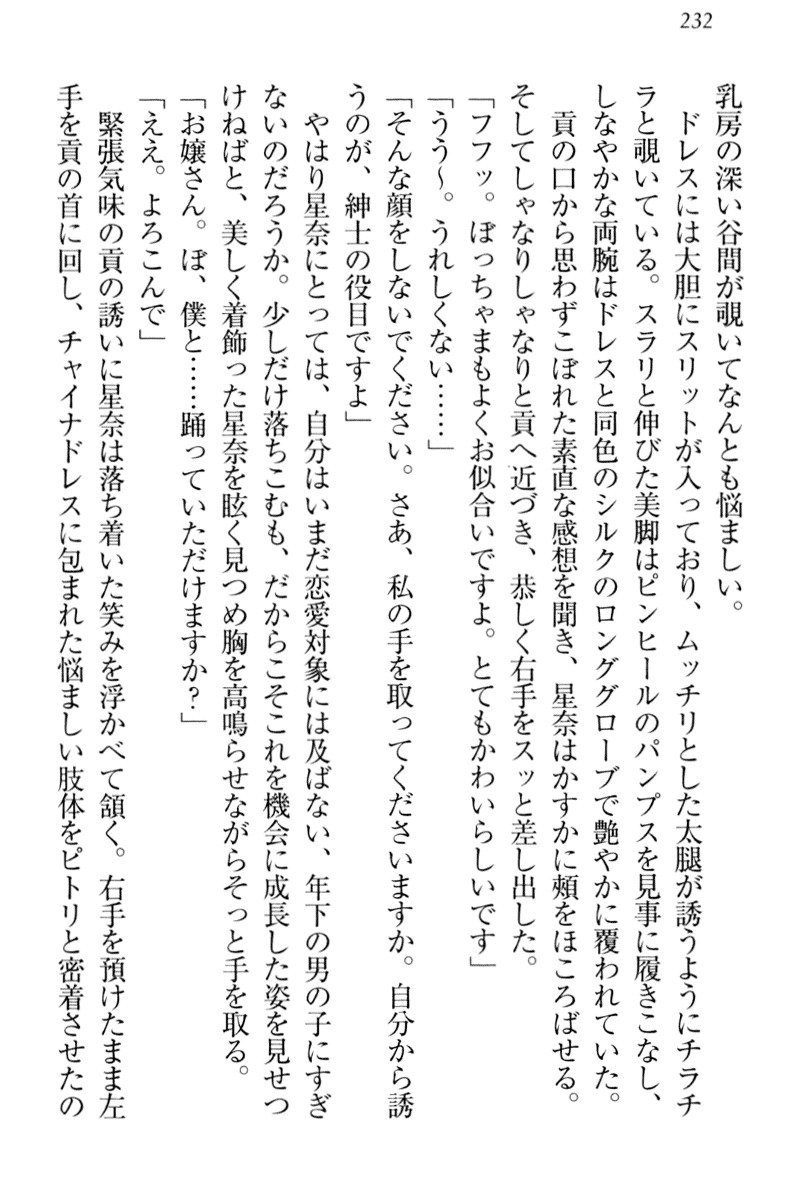 232
乳房の深い谷間が覗いてなんとも悩ましい。
ドレスには大胆にスリットが入っており、ムッチリとした太腿が誘うようにチラチ
ラと覗いている。スラリと伸びた美脚はピンヒールのパンプスを見事に履きこなし、
しなやかな両腕はドレスと同色のシルクのロンググローブで艶やかに覆われていた。
貢の口から思わずこぼれた素直な感想を聞き、星奈はかすかに頰をほころばせる。
そしてしゃなりしゃなりと貢へ近づき、恭しく右手をスッと差し出した。
「フフッ。ぼっちゃまもよくお似合いですよ。とてもかわいらしいです」
「うう～。うれしくない……」
「そんな顔をしないでください。さあ、私の手を取ってくださいますか。自分から誘
うのが、紳士の役目ですよ」
やはり星奈にとっては、自分はいまだ恋愛対象には及ばない、年下の男の子にすぎ
ないのだろうか。少しだけ落ちこむも、だからこそこれを機会に成長した姿を見せつ
けねばと、美しく着飾った星奈を眩く見つめ胸を高鳴らせながらそっと手を取る。
「お嬢さん。ぼ、僕と……踊っていただけますか？」
「ええ。よろこんで」
緊張気味の貢の誘いに星奈は落ち着いた笑みを浮かべて頷く。右手を預けたまま左
手を貢の首に回し、チャイナドレスに包まれた悩ましい肢体をピトリと密着させたの